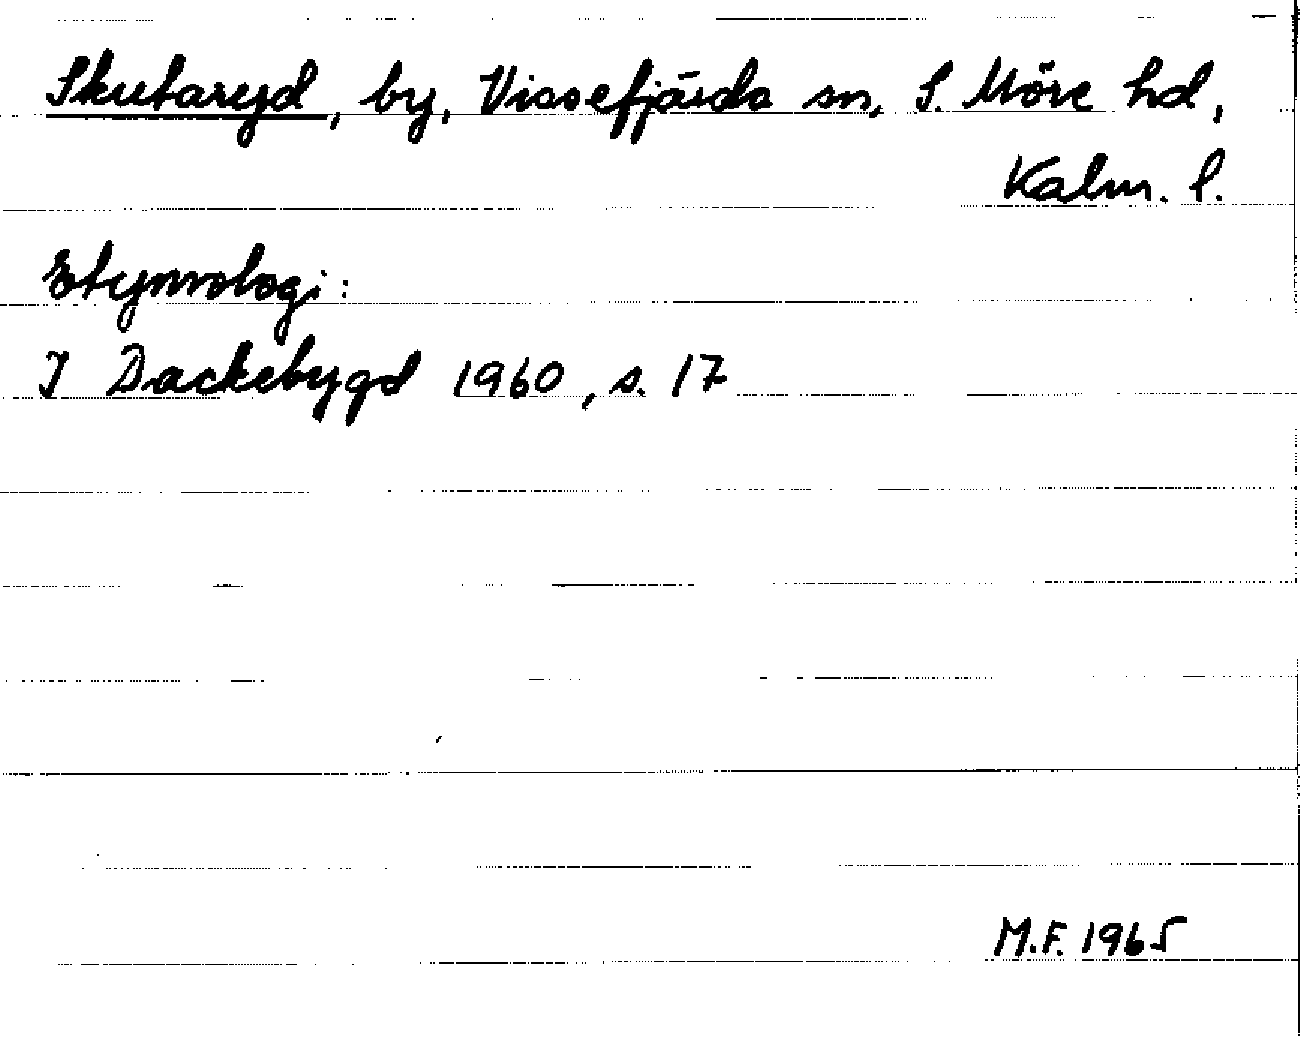 Skutaryd, by, Vissefjärda sn, S. Möre hd,
Kalm. l.
Etymologi:
I Dackebygd 1960, s. 17
M.F. 1965